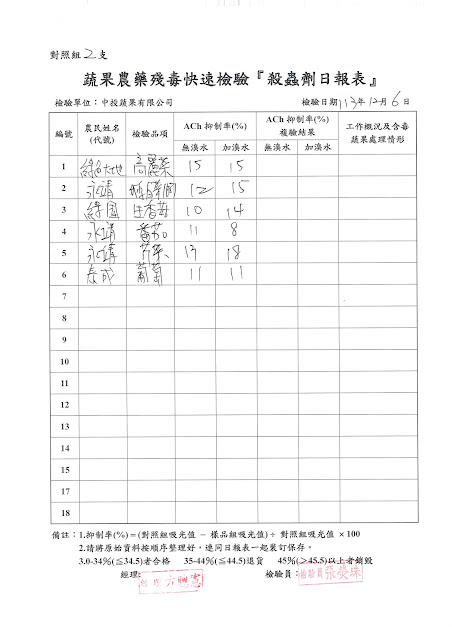 對照組 2 支
蔬果農藥殘毒快速檢驗『殺蟲劑日報表』
檢驗單位：中投蔬果有限公司 檢驗日期 113年 12月 6日
編號 農民姓名(代號) 檢驗品項 ACh 抑制率(%) 無溴水 加溴水 ACh 抑制率(%) 複驗結果 無溴水 加溴水 工作概況及含毒蔬果處理情形
1 綠色大地 高麗菜 15 15
2 永靖 12 15
3 綠園 14
4 永靖 番茄 11 8
5 永靖 芹菜 18
6 泰成 葡萄 11 11
7
8
9
10
11
12
13
14
15
17
18
備註：1.抑制率(%)＝(對照組吸光值 － 樣品組吸光值)÷ 對照組吸光值 ×100
2.請將原始資料按順序整理好，連同日報表一起裝訂保存。
3.0-34%(≦34.5)者合格 35-44%(≦44.5)退貨 45%(＞45.5)以上者銷毀
經理: 檢驗員: 檢驗員